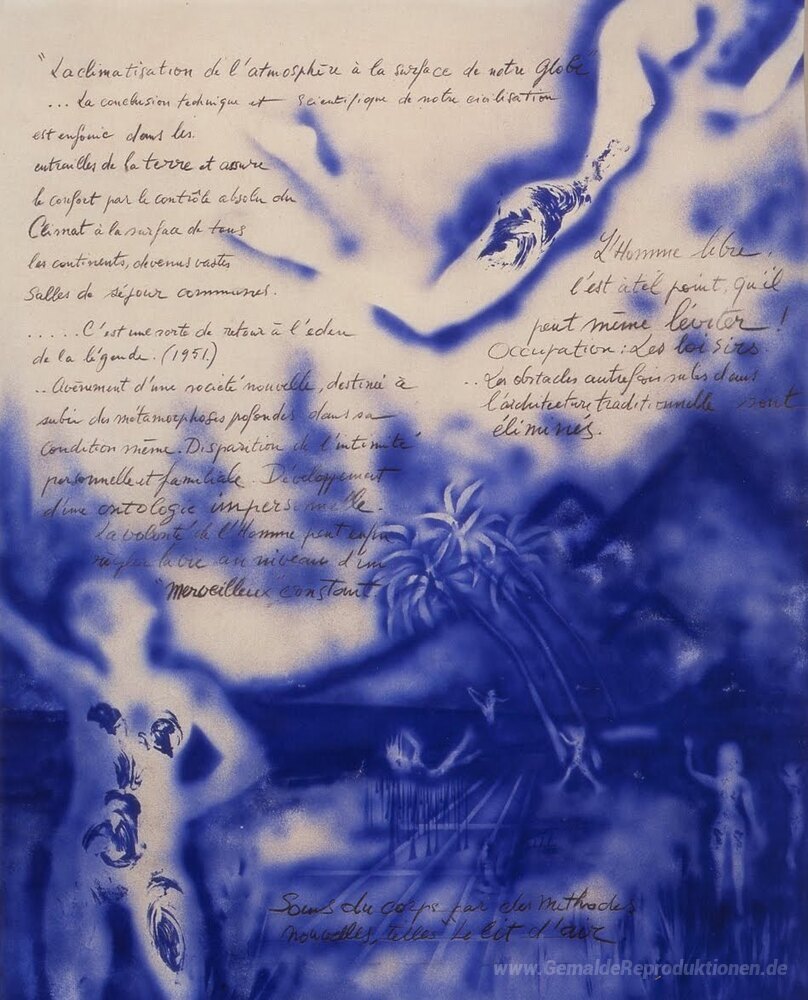 "La climatisation de l'atmosphère à la surface de notre Globe"
... La conclusion technique et scientifique de notre civilisation
est enfouie dans les
entrailles de la terre et assure
le confort par le contrôle absolu du
Climat à la surface de tous
les continents, devenus vastes
Salles de séjour communes.
..... C'est une sorte de retour à l'eden
de la légende. (1951.)
... Avènement d'une société nouvelle, destinée à
subir des métamorphoses profondes dans sa
condition même. Disparition de l'intimité
personnelle et familiale. Développement
d'une ontologie impersonnelle.
La volonté de l'Homme peut enfin
régler la vie au niveau d'un
"merveilleux" constant
L'Homme libre,
l'est à tel point, qu'il
peut même léviter!
Occupation: Les loisirs.
... Les obstacles autrefois subis dans
l'architecture traditionnelle sont
éliminés.
Soins du corps par des méthodes
nouvelles, telles le lit d'air
www.GemaldeReproduktionen.de